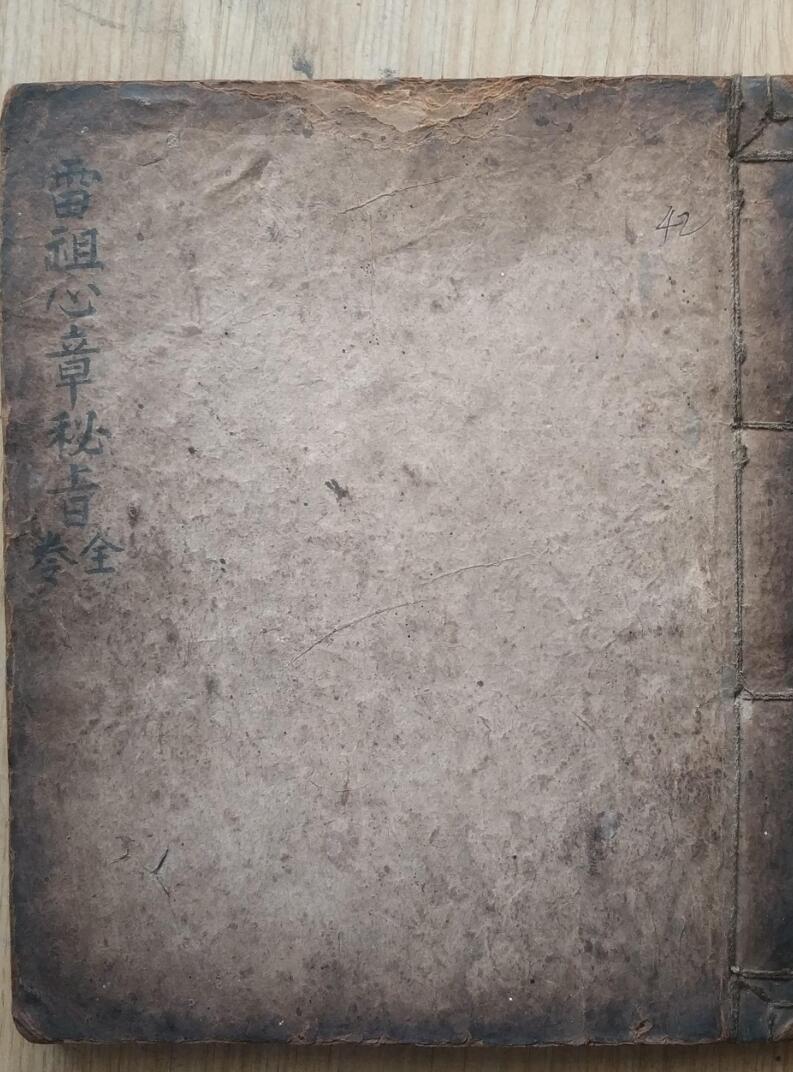 雷祖心章秘旨
全卷
42